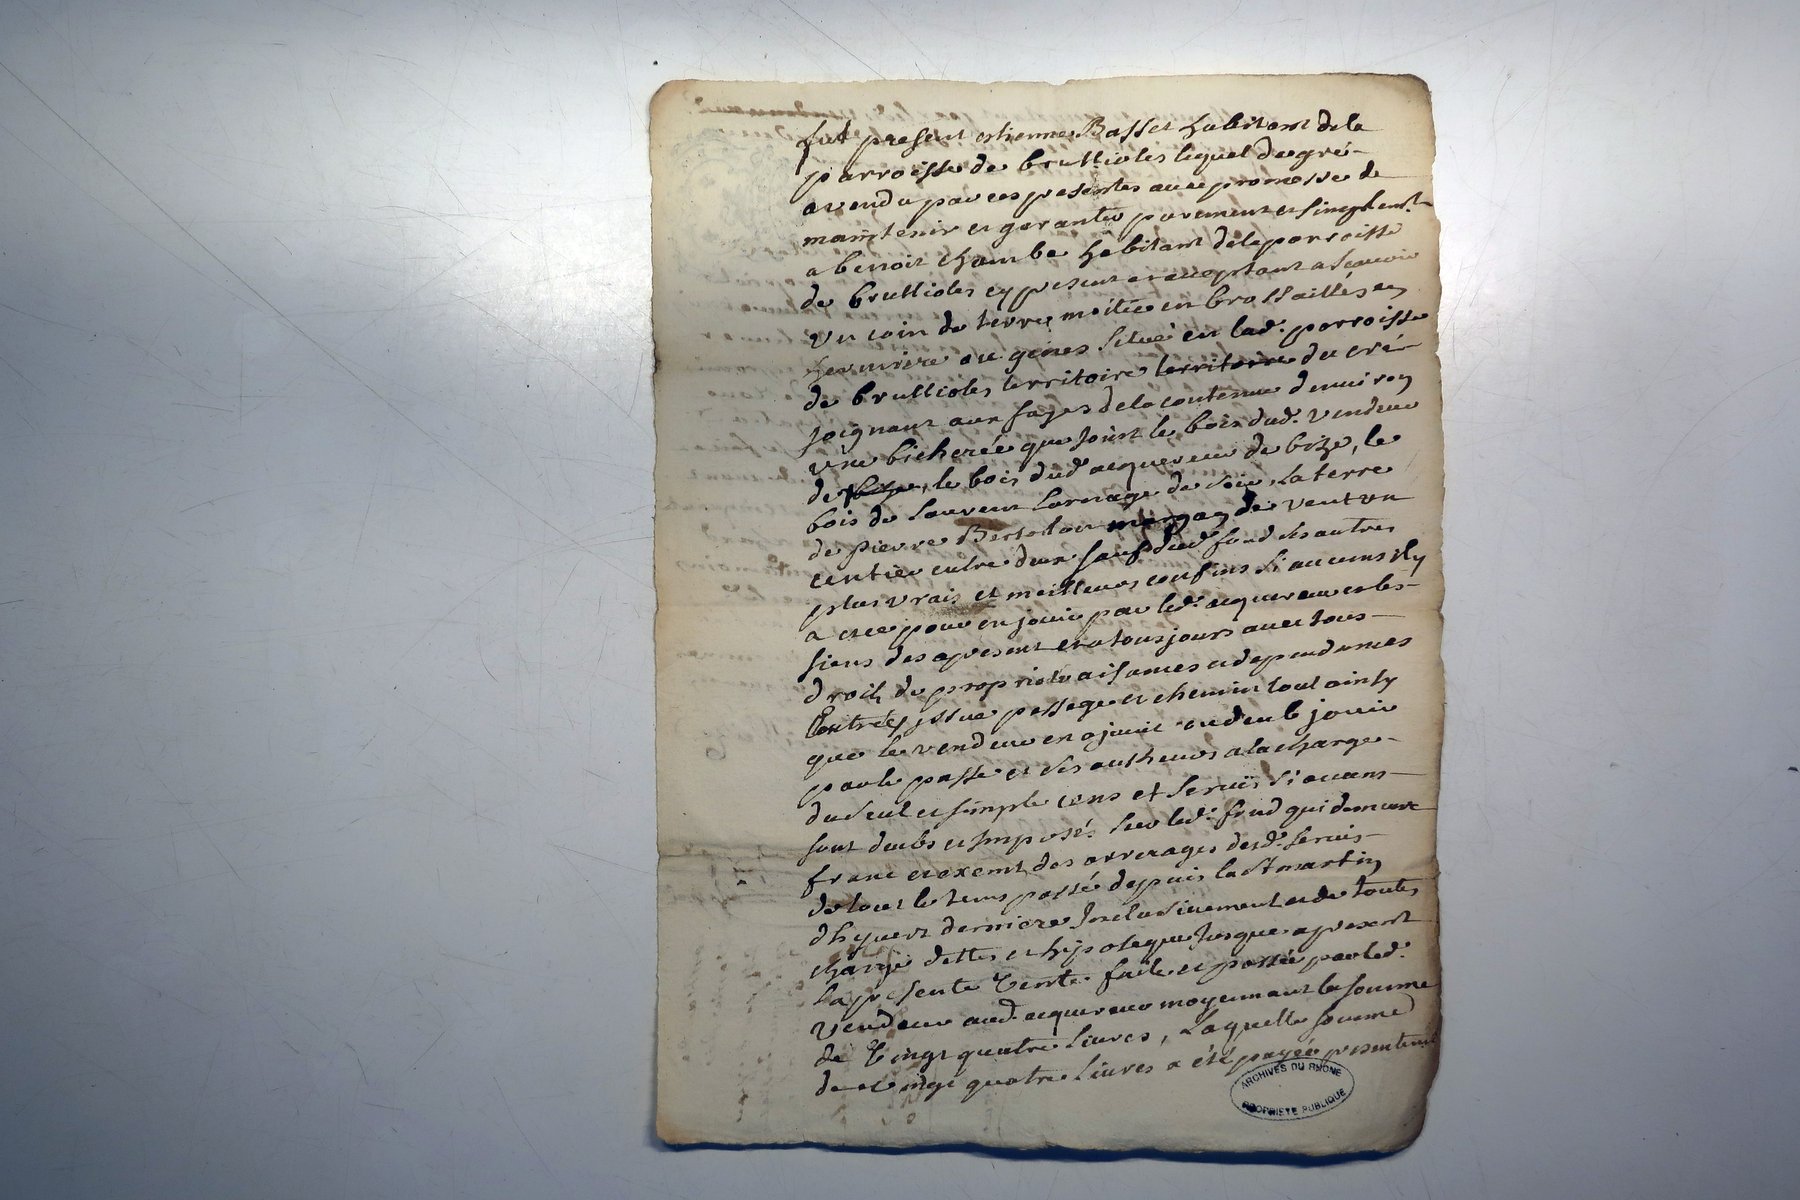 fut present estienne Basset habitant de la
parroisse de brullioles lequel de gré
a vendu par ces presentes avec promesse de
maintenir et garantir purement et simplemt
a benoit chambe habitant de la parroisse
de brullioles cy present et acceptant a scavoir
un coin de terre moitie en brossailles en
ou genes situé en lad. parroisse
de brullioles territoire territoire du cré
joignant aux fayes de la contenue denviron
une bicherée que joint le bois dud. vendeur
de , le bois dud acquereur de bize, le
bois de laurent de soir, la terre
de pierre de vent un
centier entre deux sauf dud fond ses autres
plus vrais et meilleurs confins si aucuns ily
a et ce pour en jouir par led. acquereur et les
siens des apresent et a tousjours avec tous
droits de proprieté aisances et dependances
Entrées issue passage et chemin tout ainsy
que le vendeur en a jouit ou deub jouir
par le passe et ses autheurs a la charge
du seul et simple cens et servis si aucuns
sont deubs et imposés sur led. fond qui demeure
franc et exempt des arrerages desd. servis
de tout le tems passé depuis la st martin
dhyvert derniere inclusivement et de toutes
charge dettes et hipoteque jusques apresent
la presente vente faite et passée par led.
vendeur aud. acquereur moyennant la somme
de vingt quatre livres, laquelle somme
de vingt quatre livres a été payée presentemt
ARCHIVES DU RHONE
PROPRIETE PUBLIQUE